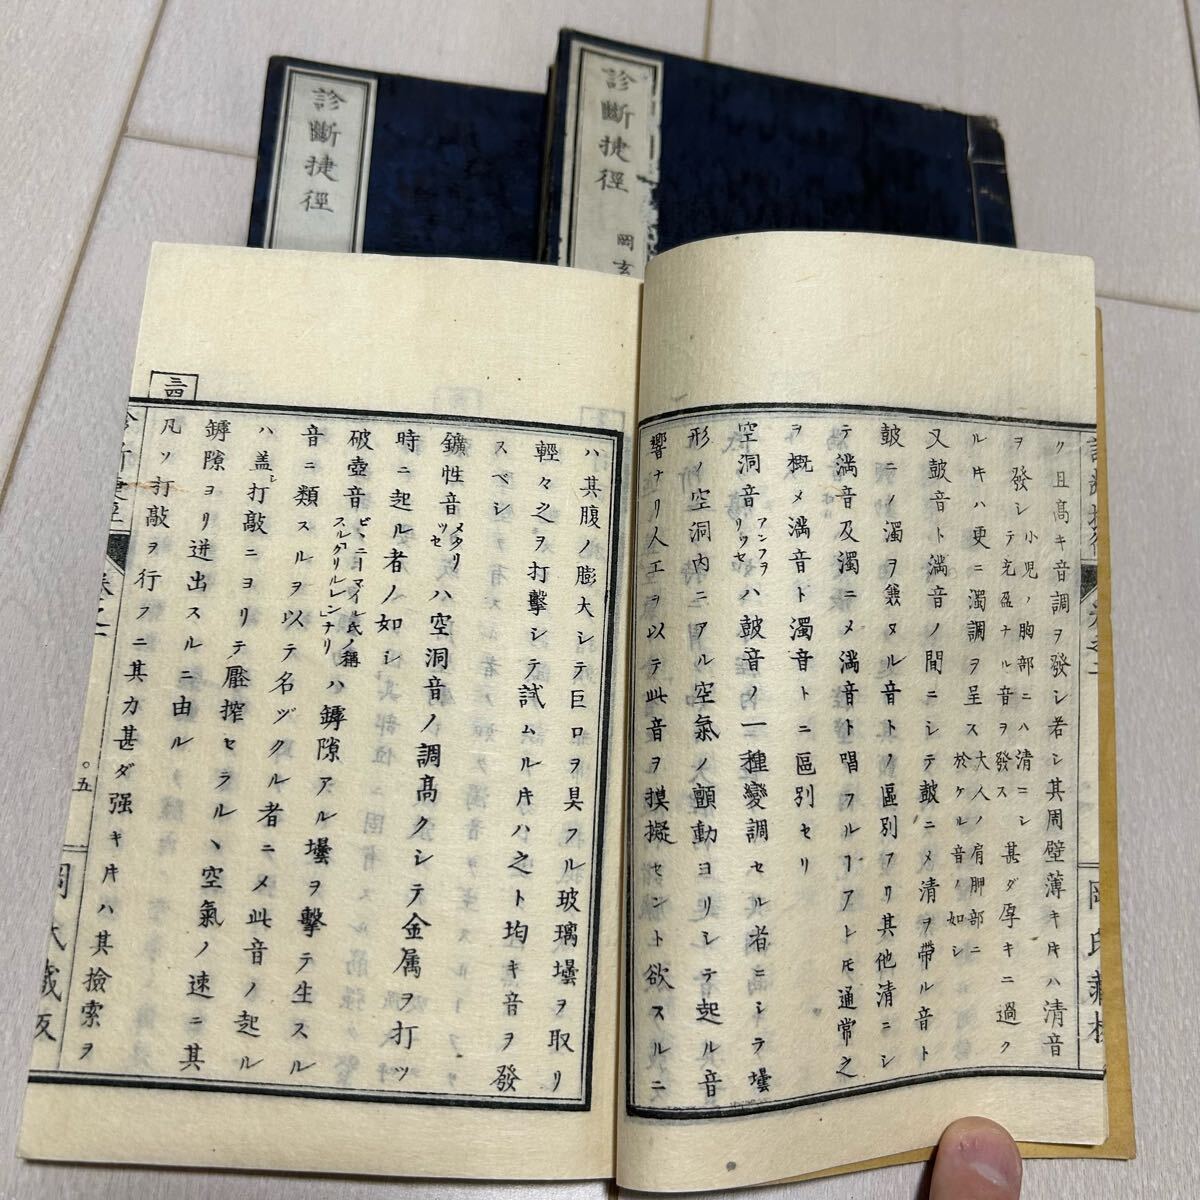 診斷捷徑
診斷捷徑
岡玄
ク且高キ音調ヲ發シ若シ其周壁薄キ𪜈ハ清音
ヲ發シ 小児ノ胸部ニハ清ニシテ充盈ナル音ヲ發ス 大人ノ肩胛部ニ於ケル音ノ如シ 甚ダ厚キニ過ク
ル𪜈ハ更ニ濁調ヲ呈ス
又鼓音ト満音ノ間ニシテ鼓ニ〆清ヲ帶ル音ト
鼓ニノ濁ヲ兼ヌル音トノ區別アリ其他清ニシ
テ満音及濁ニ〆満音ト唱フルヿアトモ通常之
ヲ概〆満音ト濁音トニ區別セリ
空洞音 アンフヲリツセ ハ鼓音ノ一種變調セル者ニシテ壜
形ノ空洞內ニアル空氣ノ顫動ヨリシテ起ル音
響ナリ人工ヲ以テ此音ヲ摸擬セント欲スルニ
ハ其腹ノ膨大シテ巨口ヲ具フル玻璃壜ヲ取リ
輕々之ヲ打擊シテ試ムル𪜈ハ之ト均キ音ヲ發
スベシ
鑛性音 メタリツセ ハ空洞音ノ調高クシテ金属ヲ打ツ
時ニ起ル者ノ如シ
破壺音 ビ、ニヨマイル氏ノ稱スル「グリルレン」ナリ ハ罅隙アル壜ヲ擊テ生スル
音ニ類スルヲ以テ名ヅクル者ニ〆此音ノ起ル
ハ蓋シ打敲ニヨリテ壓搾セラル、空氣ノ速ニ其
罅隙ヨリ迸出スルニ由ル
凡ソ打敲ヲ行フニ其力甚ダ强キ𪜈ハ其撿索ヲ
三四
診斷捷徑
卷之二
五
岡氏藏板